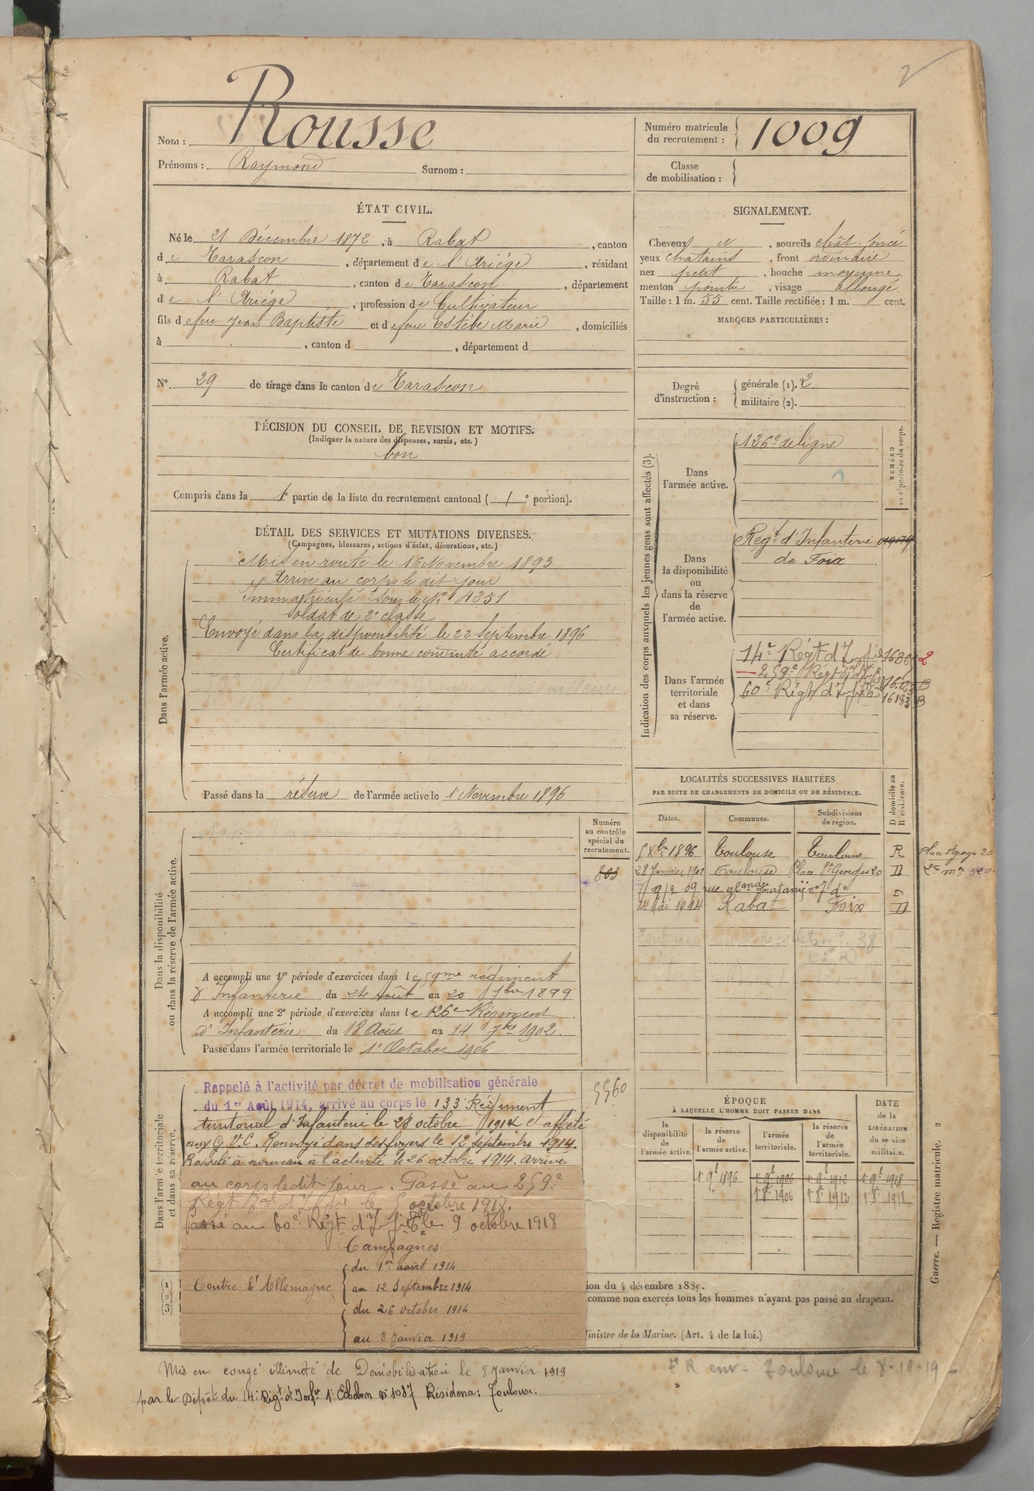 2
Nom : Rousse
Prénoms : Raymond Surnom :
Numéro matricule du recrutement : 1009
Classe de mobilisation :
ÉTAT CIVIL.
Né le 21 Décembre 1872, à Rabat, canton
de Tarascon, département de l'Ariège, résidant
à Rabat, canton de Tarascon, département
de l'Ariège, profession de Cultivateur
fils de feu Jean Baptiste et de feue Estèbe Marie, domiciliés
à , canton d , département d
N° 29 de tirage dans le canton de Tarascon
DÉCISION DU CONSEIL DE REVISION ET MOTIFS.
(Indiquer la nature des dispenses, sursis, etc.)
bon
Compris dans la 1e partie de la liste du recrutement cantonal (1e portion).
SIGNALEMENT.
Cheveux et , sourcils chât. foncé
yeux châtains, front ordinaire
nez petit, bouche moyenne
menton pointu, visage allongé
Taille : 1 m. 55 cent. Taille rectifiée : 1 m. cent.
MARQUES PARTICULIÈRES :
Degré d'instruction :
générale (1). 2
militaire (2).
DÉTAIL DES SERVICES ET MUTATIONS DIVERSES.
(Campagnes, blessures, actions d'éclat, décorations, etc.)
Dans l'armée active.
Mis en route le 16 Novembre 1893
Arrivé au corps le dit jour
Immatriculé sous le N° 4351
Soldat de 2e classe
Envoyé dans la disponibilité le 22 Septembre 1896
Certificat de bonne conduite accordé
Passé dans la réserve de l'armée active le 1 Novembre 1896
Indication des corps auxquels les jeunes gens sont affectés (3).
NUMÉRO au répertoire du corps.
Dans l'armée active.
126e de ligne
Dans la disponibilité ou dans la réserve de l'armée active.
Régt d'Infanterie
de Foix
Dans l'armée territoriale et dans sa réserve.
14e Régt d'Inf ie 2
259e Régt
60e Régt d'Inf ie 16183 B
LOCALITÉS SUCCESSIVES HABITÉES
PAR SUITE DE CHANGEMENTS DE DOMICILE OU DE RÉSIDENCE.
Dates. Communes. Subdivisions de région. D domicile ou R résidence.
1896 Toulouse Toulouse R
28 Janvier 1902 Toulouse Place St Georges 20 D
09 rue
14 Mai 1914 Rabat Foix D
Dans la disponibilité ou dans la réserve de l'armée active.
Numéro au contrôle spécial du recrutement.
803
A accompli une 1re période d'exercices dans le 59me régiment
d'Infanterie du 24 Août au 20 7bre 1899
A accompli une 2e période d'exercices dans le 126e Régiment
d'Infanterie du 18 Août au 14 7bre 1902.
Passé dans l'armée territoriale le 1er Octobre 1906
Dans l'armée territoriale et dans sa réserve.
5560
Rappelé à l'activité par décret de mobilisation générale
du 1er Août 1914, arrivé au corps le 133 Régiment
territorial d'Infanterie le 28 octobre 1914 et affecté
aux G.V.C. Renvoyé dans ses foyers le 12 septembre 1914.
Rappelé à nouveau à l'activité le 26 octobre 1914. Arrivé
au corps le dit jour. Passé au 259e
Régt octobre 1918.
Passé au 60e Régt d'Inf ie le 9 octobre 1918
Campagnes
Contre l'Allemagne
du 1er août 1914
au 12 Septembre 1914
du 26 octobre 1914
au 8 Janvier 1919
ÉPOQUE
À LAQUELLE L'HOMME DOIT PASSER DANS
la disponibilité de l'armée active. la réserve de l'armée active. l'armée territoriale. la réserve de l'armée territoriale. DATE de la LIBÉRATION du service militaire.
1 9bre 1896 1 9bre 1906 1 9bre 1912 1 9bre 1918
1 8bre 1906 1 8bre 1912 1 8bre 1918
comme non exercés tous les hommes n'ayant pas passé au drapeau.
Ministre de la Marine. (Art. 4 de la loi.)
Guerre. — Registre matricule. 2
Mis en congé illimité de Démobilisation le 8 Janvier 1919
par le Dépôt du 14e Régt d'Infie 1e Echelon n° 1087 Résidence : Toulouse.
Toulouse le 8-10-19